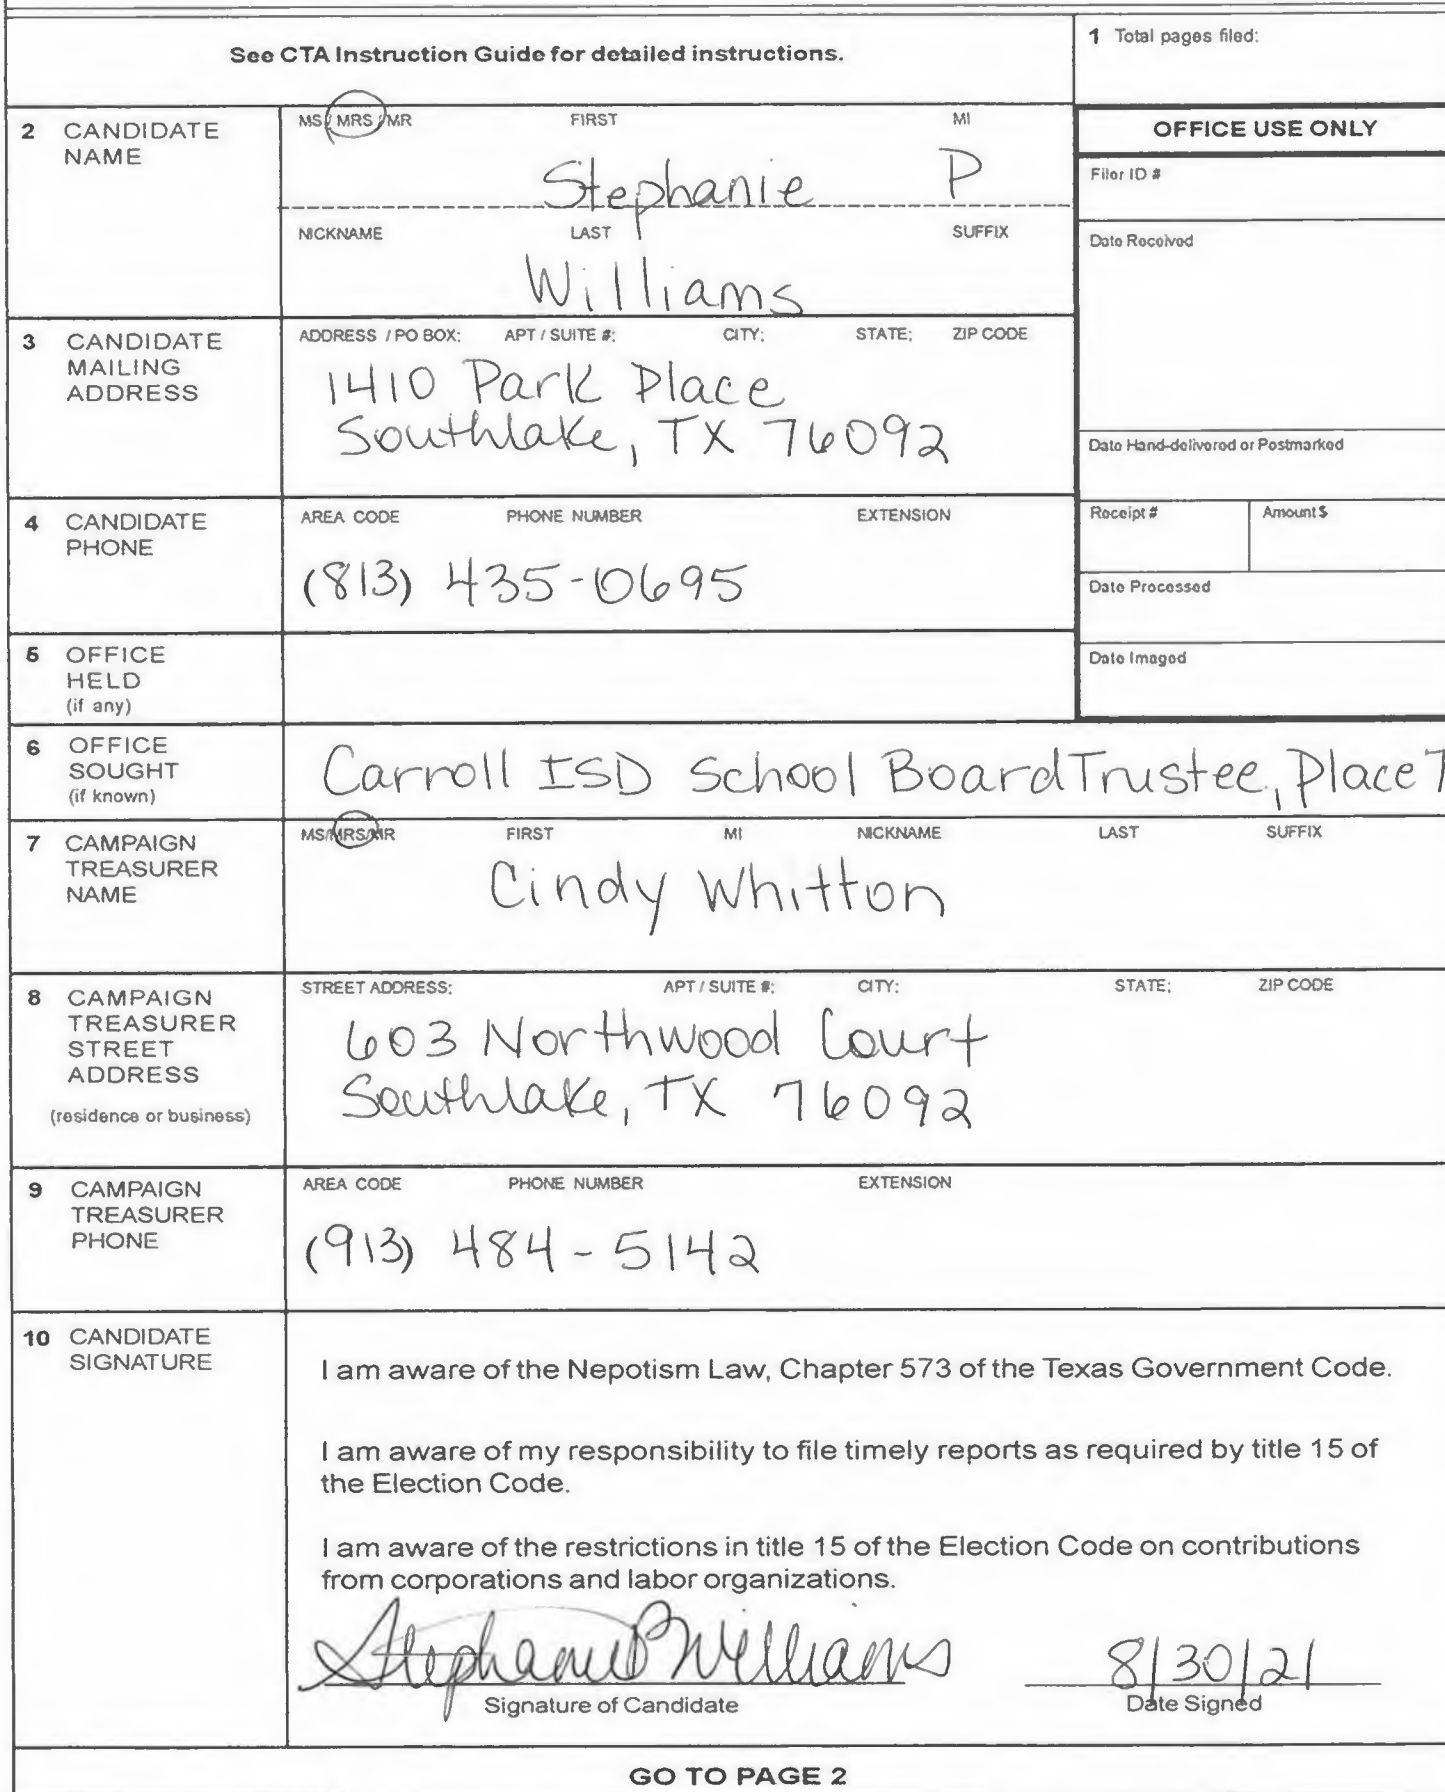 See CTA Instruction Guide for detailed instructions.
1 Total pages filed:
2 CANDIDATE NAME
MS / MRS / MR FIRST MI
Stephanie P
NICKNAME LAST SUFFIX
Williams
OFFICE USE ONLY
Filer ID #
Date Received
3 CANDIDATE MAILING ADDRESS
ADDRESS / PO BOX; APT / SUITE #; CITY; STATE; ZIP CODE
1410 Park Place
Southlake, TX 76092
Date Hand-delivered or Postmarked
4 CANDIDATE PHONE
AREA CODE PHONE NUMBER EXTENSION
(813) 435-0695
Receipt # Amount $
Date Processed
5 OFFICE HELD (if any)
Date Imaged
6 OFFICE SOUGHT (if known)
Carroll ISD School Board Trustee, Place 7
7 CAMPAIGN TREASURER NAME
MS/MRS/MR FIRST MI NICKNAME LAST SUFFIX
Cindy Whitton
8 CAMPAIGN TREASURER STREET ADDRESS
(residence or business)
STREET ADDRESS; APT / SUITE #; CITY; STATE; ZIP CODE
603 Northwood Court
Southlake, TX 76092
9 CAMPAIGN TREASURER PHONE
AREA CODE PHONE NUMBER EXTENSION
(913) 484-5142
10 CANDIDATE SIGNATURE
I am aware of the Nepotism Law, Chapter 573 of the Texas Government Code.
I am aware of my responsibility to file timely reports as required by title 15 of
the Election Code.
I am aware of the restrictions in title 15 of the Election Code on contributions
from corporations and labor organizations.
Stephanie P Williams 8/30/21
Signature of Candidate Date Signed
GO TO PAGE 2